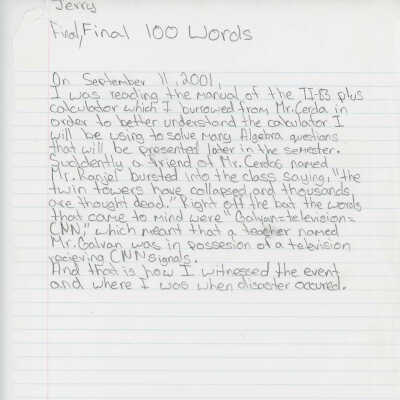 Jerry
Final, Final 100 Words
On September 11, 2001,
I was reading the manual of the TI-83 plus
calculator which I burrowed from Mr. Cerda in
order to better understand the calculator I
will be using to solve many Algebra questions
that will be presented later in the semester.
Suddenly a friend of Mr. Cerdas named
Mr. Rangel bursted into the class saying, "the
twin towers have collapsed, and thousands,
are thought dead." Right off the bat the words
that came to mind were "Galvan=television=
CNN," which meant that a teacher named
Mr. Galvan was in possesion of a television
recieving CNN signals.
And that is how I witnessed the event
and where I was when disaster occured.